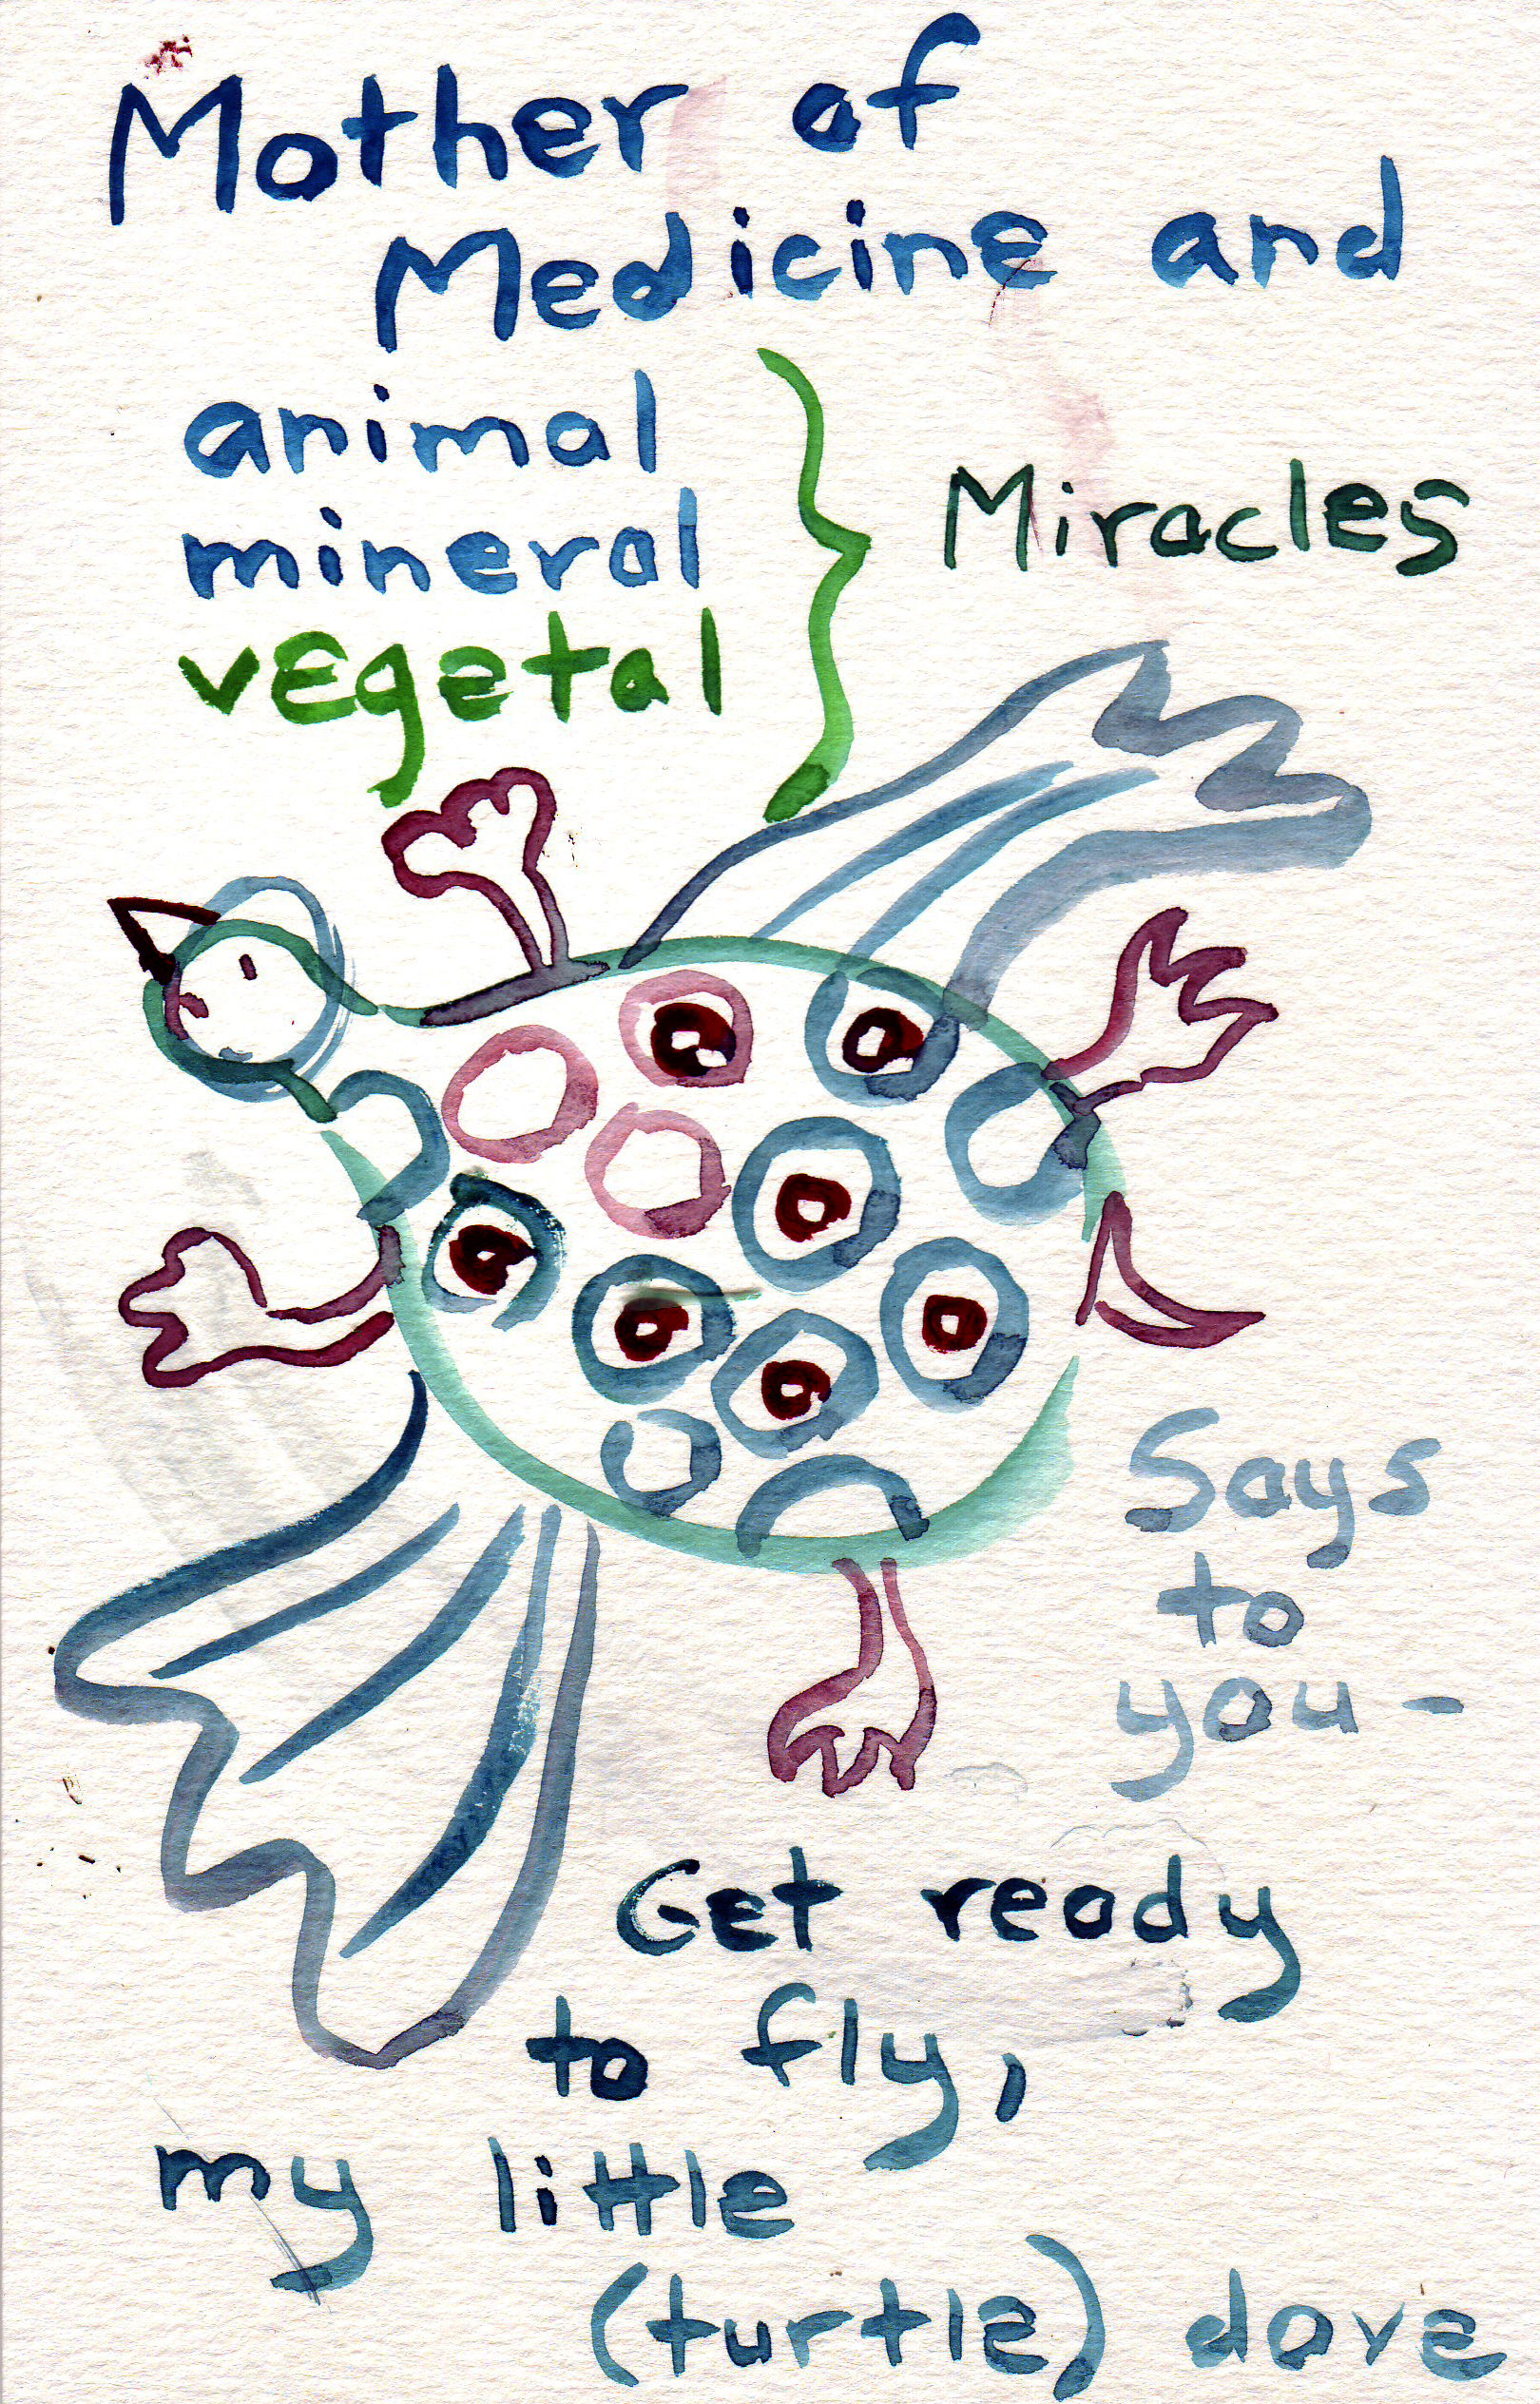 Mother of
Medicine and
animal
mineral
vegetal
Miracles
Says
to
you-
Get ready
to fly,
my little
(turtle) dove